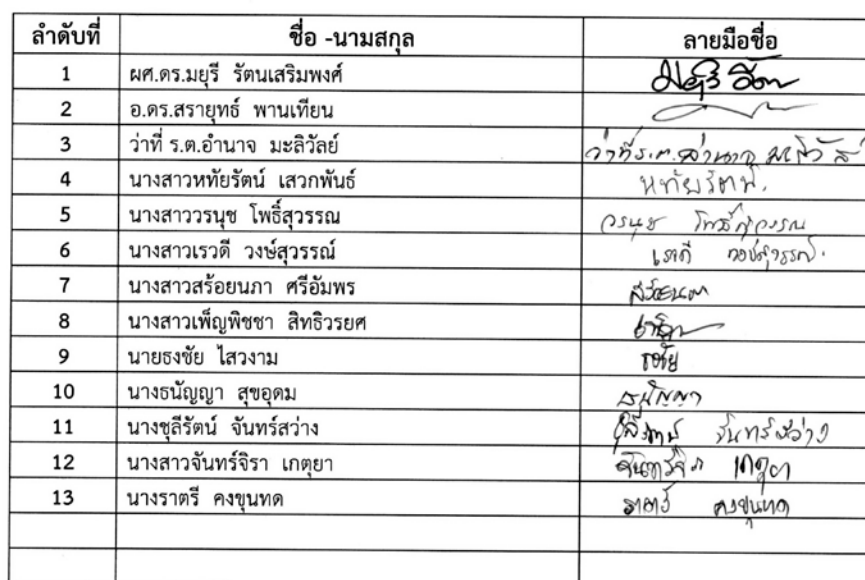 ลำดับที่ ชื่อ -นามสกุล ลายมือชื่อ
1 ผศ.ดร.มยุรี รัตนเสริมพงศ์
2 อ.ดร.สรายุทธ์ พานเทียน
3 ว่าที่ ร.ต.อำนาจ มะลิวัลย์ ว่าที่ร.ต.อำนาจ
4 นางสาวหทัยรัตน์ เสวกพันธ์ หทัยรัตน์.
5 นางสาววรนุช โพธิ์สุวรรณ วรนุช โพธิ์สุวรรณ
6 นางสาวเรวดี วงษ์สุวรรณ์ เรวดี วงษ์สุวรรณ์.
7 นางสาวสร้อยนภา ศรีอัมพร สร้อยนภา
8 นางสาวเพ็ญพิชชา สิทธิวรยศ
9 นายธงชัย ไสวงาม ธงชัย
10 นางธนัญญา สุขอุดม ธนัญญา
11 นางชุลีรัตน์ จันทร์สว่าง ชุลีรัตน์ จันทร์สว่าง
12 นางสาวจันทร์จิรา เกตุยา จันทร์จิรา เกตุยา
13 นางราตรี คงขุนทด ราตรี คงขุนทด